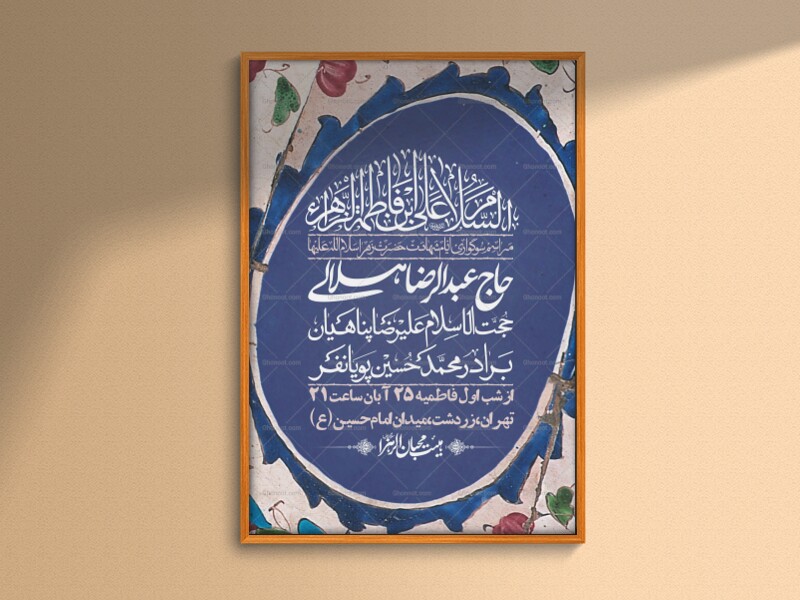 السلام علی ابن فاطمة الزهراء
مراسم سوگواری ایام شهادت حضرت زهرا سلام الله علیها
حاج عبدالرضا هلالی
حجت الاسلام علیرضا پناهیان
برادر محمدحسین پویانفر
از شب اول فاطمیه ۲۵ آبان ساعت ۲۱
تهران،زردشت،میدان امام حسین (ع)
هیئت محبان الزهرا